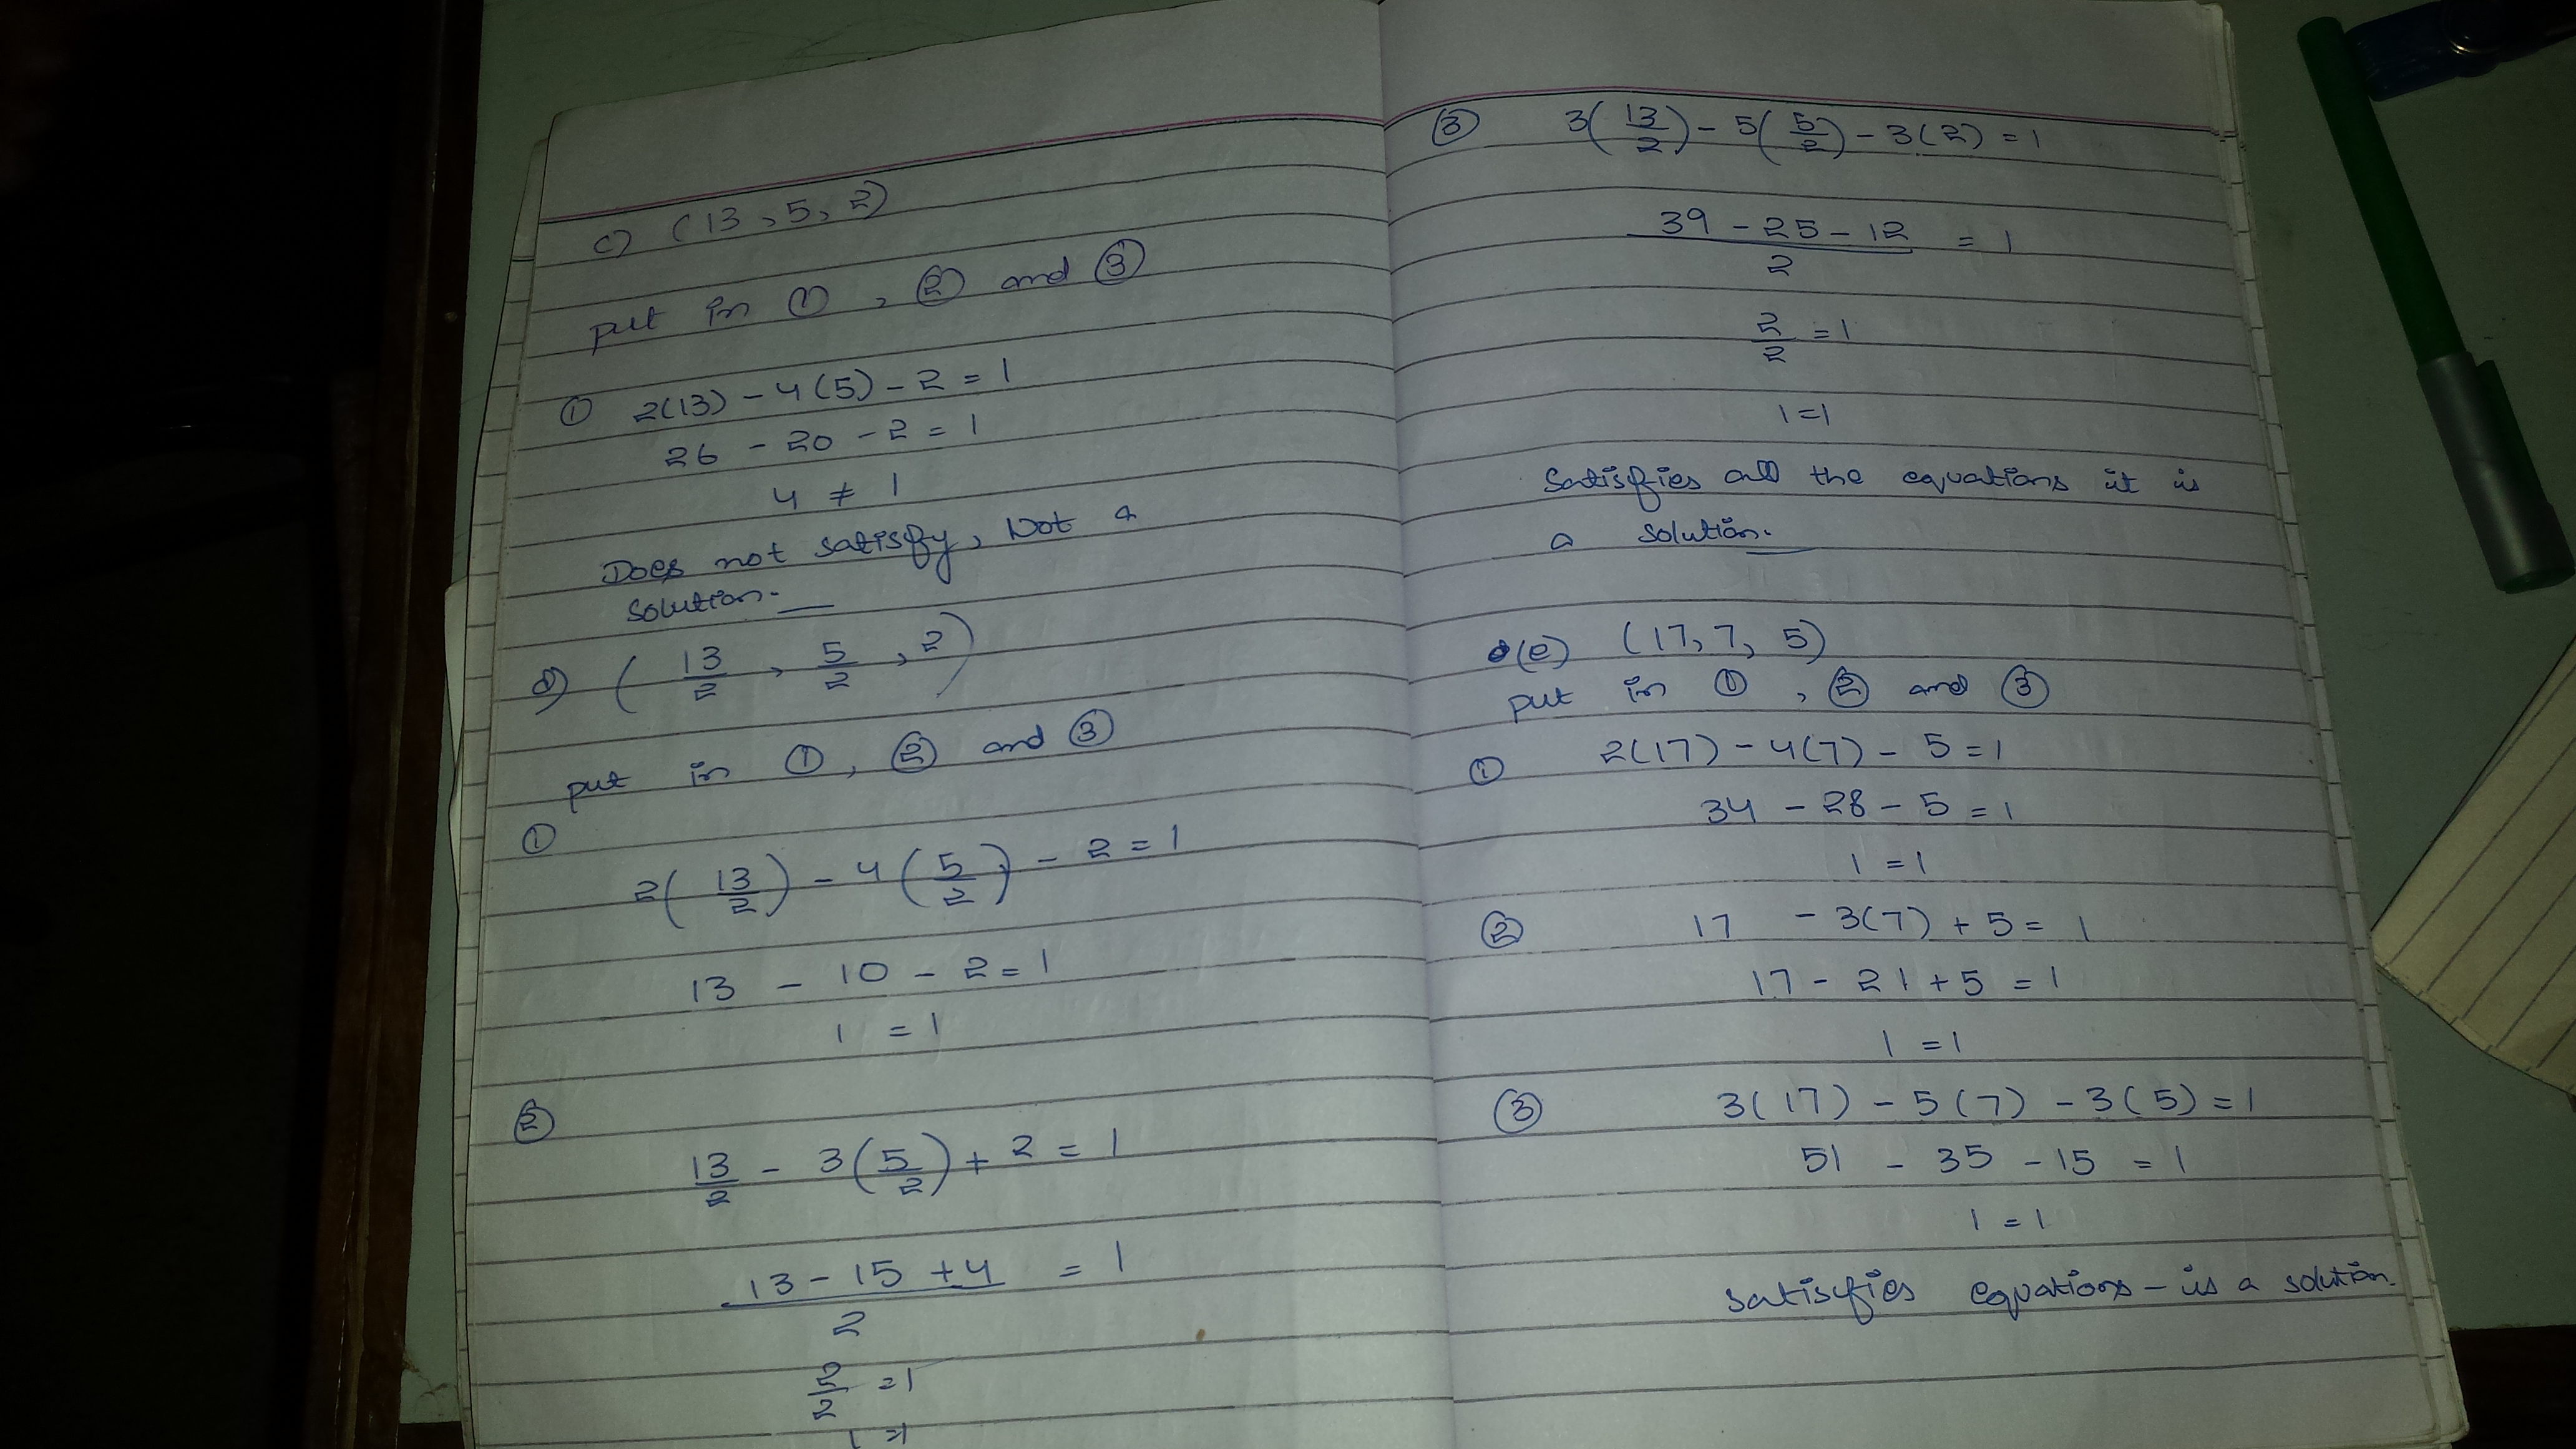 c) (13, 5, 2)
put in ①, ② and ③
① 2(13) - 4(5) - 2 = 1
26 - 20 - 2 = 1
4 ≠ 1
Does not satisfy, Not a
solution.
d) (13/2, 5/2, 2)
put in ①, ② and ③
①
2(13/2) - 4(5/2) - 2 = 1
13 - 10 - 2 = 1
1 = 1
②
13/2 - 3(5/2) + 2 = 1
(13 - 15 + 4)/2 = 1
2/2 = 1
1 = 1
③ 3(13/2) - 5(5/2) - 3(2) = 1
(39 - 25 - 12)/2 = 1
2/2 = 1
1 = 1
Satisfies all the equations it is
a solution.
(e) (17, 7, 5)
put in ①, ② and ③
① 2(17) - 4(7) - 5 = 1
34 - 28 - 5 = 1
1 = 1
② 17 - 3(7) + 5 = 1
17 - 21 + 5 = 1
1 = 1
③ 3(17) - 5(7) - 3(5) = 1
51 - 35 - 15 = 1
1 = 1
satisfies equations - is a solution.